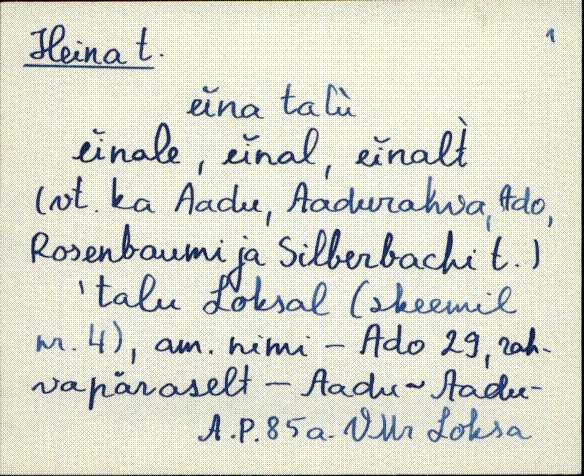 Heina t. 1
eĭna talù
eĭnale, eĭnal, eĭnalt̀
(vt. ka Aadu, Aadurahva, Ado,
Rosenbaumi ja Silberbachi t.)
'talu Loksal (skeemil
nr. 4), am. nimi – Ado 29, rah-
vapäraselt – Aadu ~ Aadu-
A.P. 85a. VMr Loksa